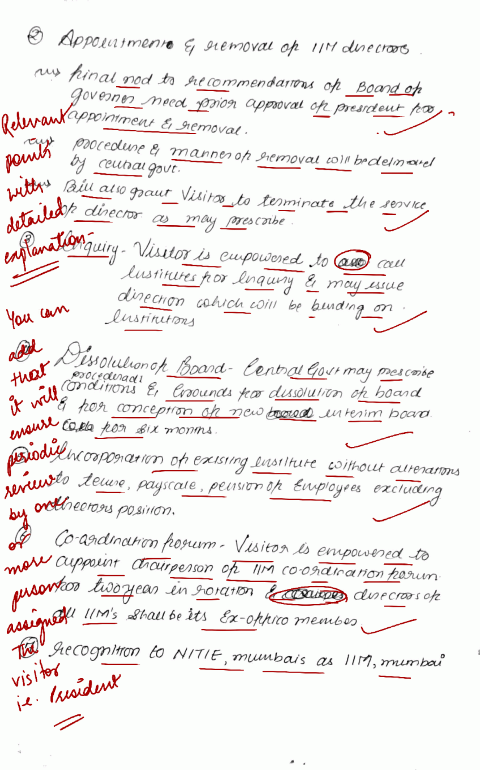 ② Appointment & removal of IIM directors.
final nod to recommendations of Board of
governer need prior approval of president for
appointment & removal.
procedure & manner of removal will be delineated
by central govt.
Bill also grant Visitor to terminate the service
of director as may prescribe.
Enquiry - Visitor is empowered to call
Institutes for Inquiry & may issue
direction which will be binding on
Institutions
Dissolution of Board - Central Govt may prescribe
procedural
conditions & Grounds for dissolution of board
& for conception of new interim board
for six months.
Incorporation of existing institute without alterations
to tenure, payscale, pension of Employees excluding
directors position.
Co-ordination forum - Visitor is empowered to
appoint chairperson of IIM co-ordination forum
for two year in rotation & directors of
all IIM's shall be its Ex-offico member
recognition to NITIE, mumbais as IIM, mumbai
Relevant
points
with
detailed
explanation
You can
add
that
it will
ensure
periodic
review
by one
or
more
person
assigned
visitor
i.e. President